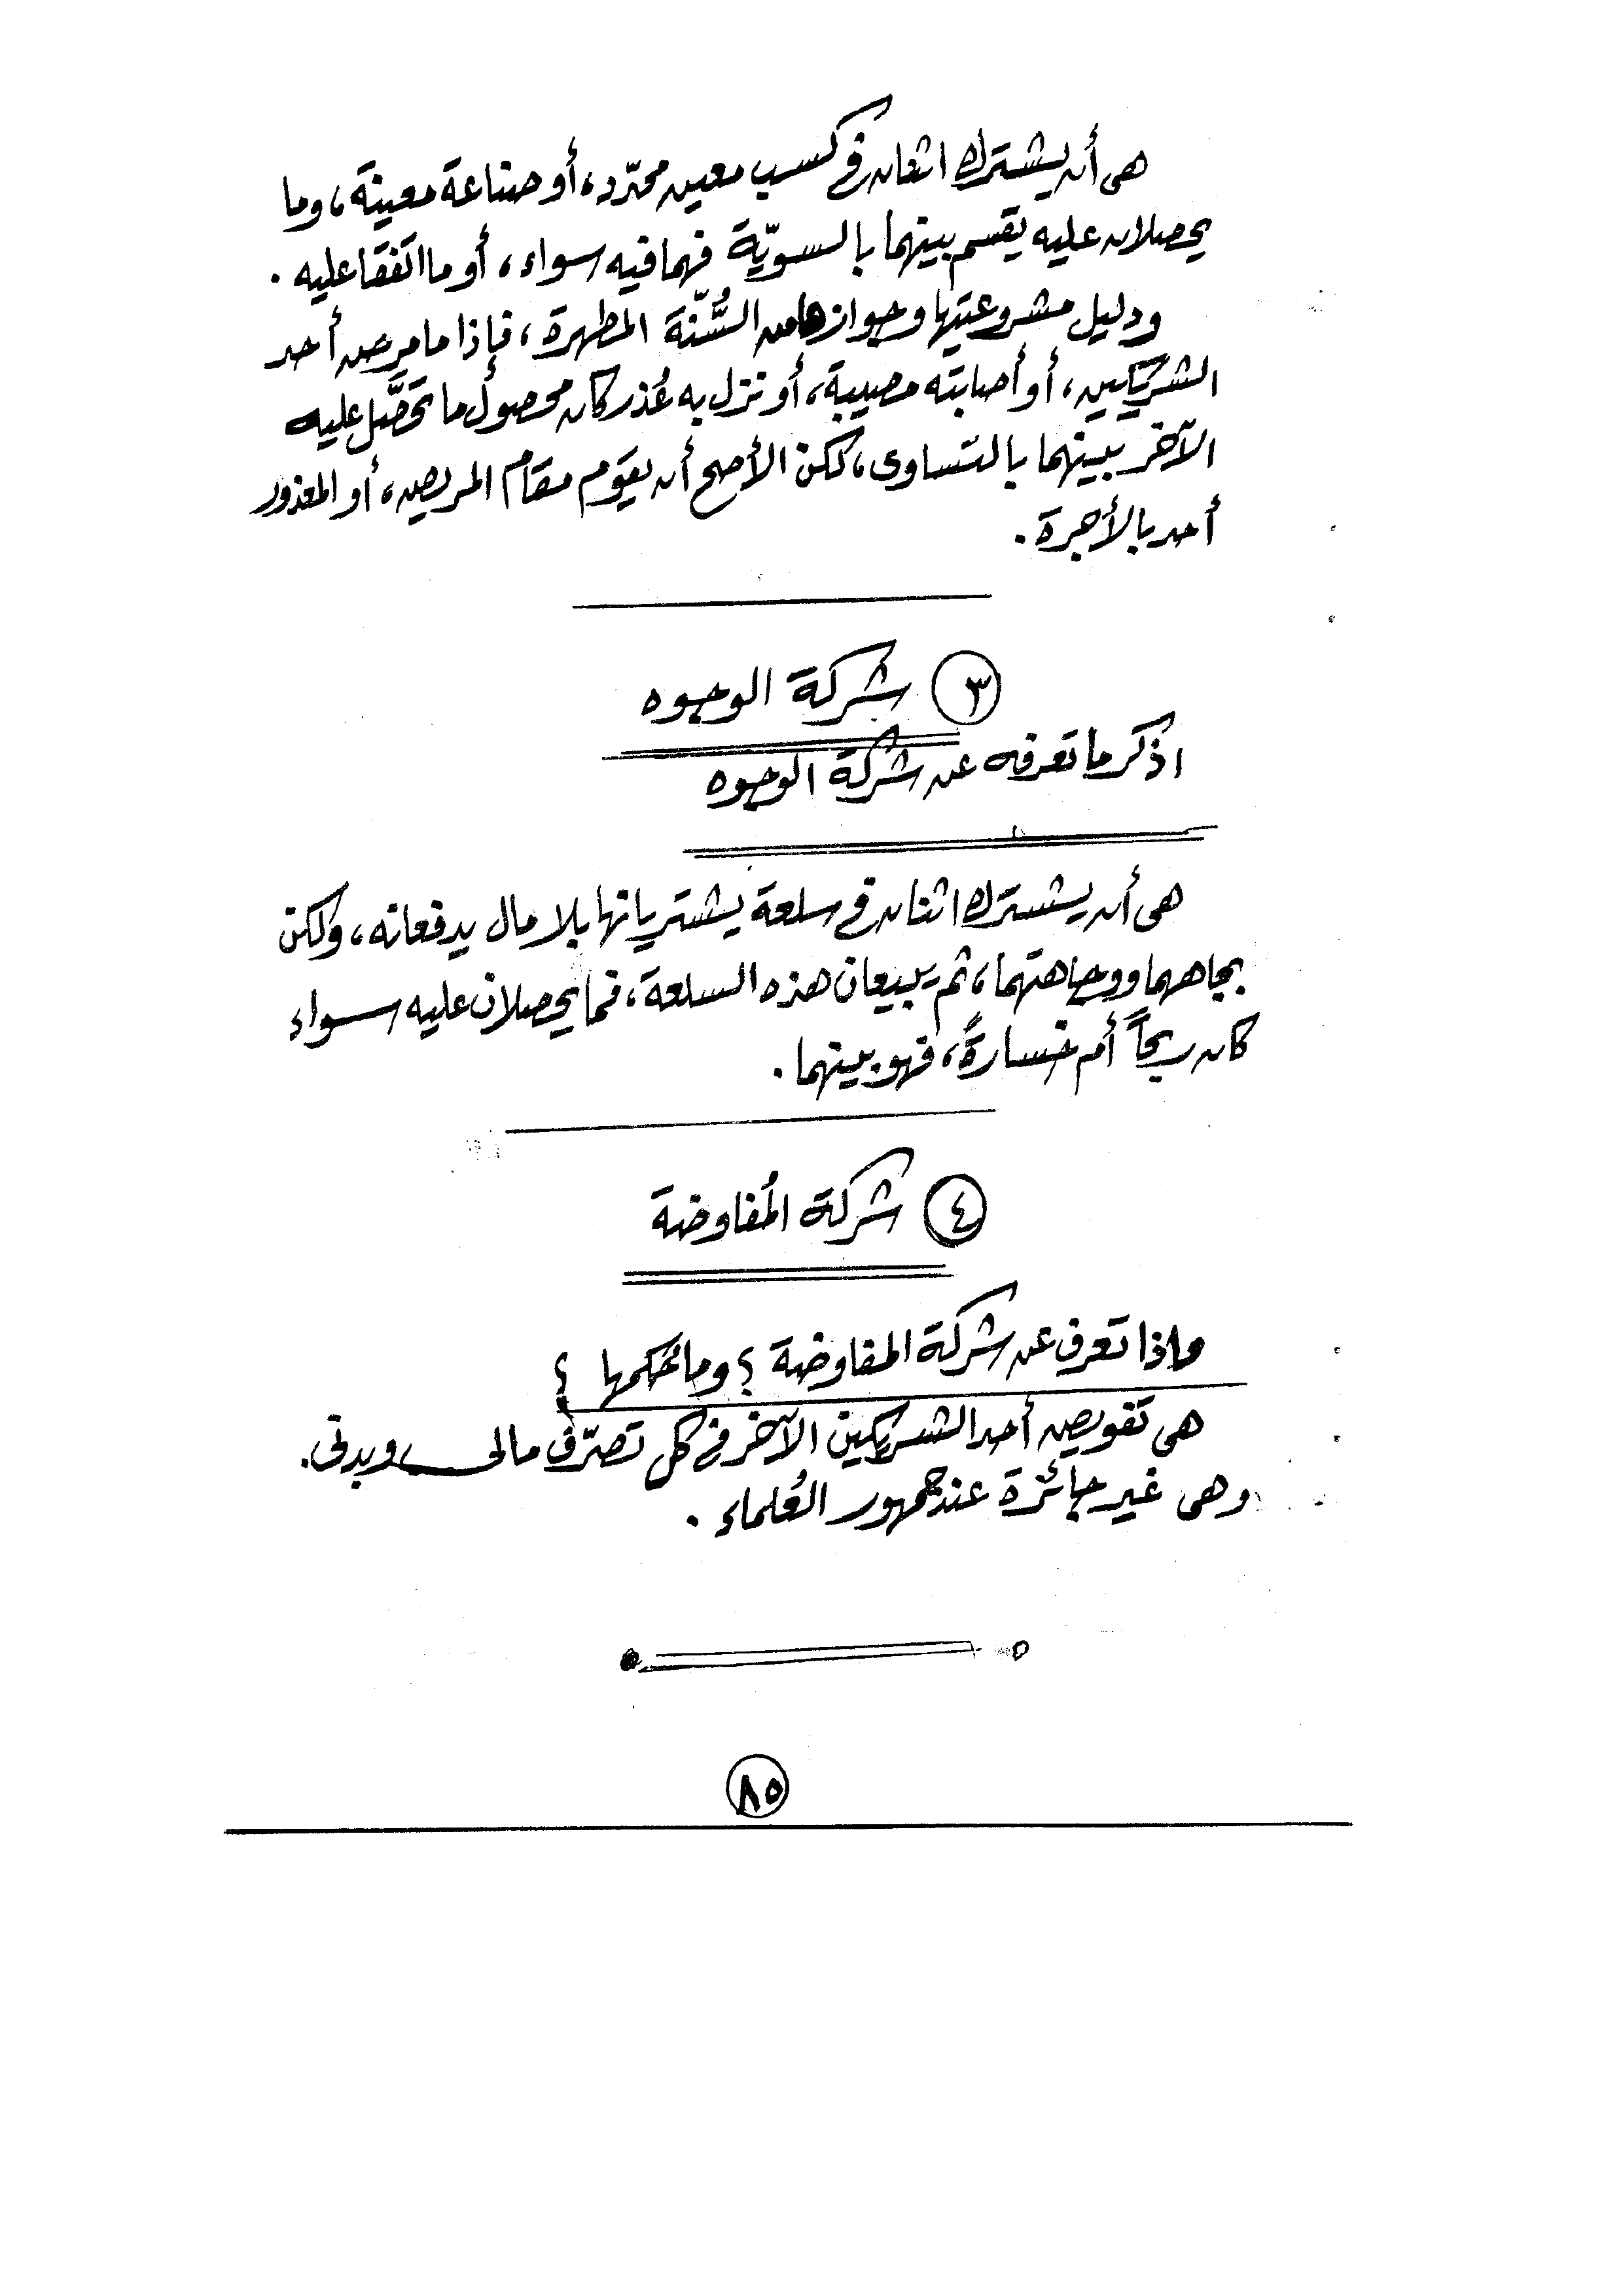 هى أن يشترك اثنان فى كسب معين محدّد، أو صناعة معينة، وما
يحصلان عليه يقسم بينهما بالسويّة فهما فيه سواء، أو ما اتفقا عليه .
ودليل مشروعيتها وجوازها من السُّنّة المطهرة، فإذا ما مرض أحد
الشريكين، أو أصابته مصيبة، أو نزل به عُذر كان محصول ما تحصَّل عليه
الآخر بينهما بالتساوى، لكن الأصح أن يقوم مقام المريض، أو المعذور
أحد بالأجرة .
٣ شركة الوجوه
اذكر ما تعرفه عن شركة الوجوه
هى أن يشترك اثنان فى سلعة يشتريانها بلا مال يدفعانه، ولكن
بجاههما ووجاهتهما، ثم يبيعان هذه السلعة، فما يحصلان عليه سواء
كان ربحاً أم خسارةً، فهو بينهما .
٤ شركة المُفاوضة
ماذا تعرف عن شركة المفاوضة ؟ وما حُكمها ؟
هى تفويض أحد الشريكين الآخر فى كل تصرّف مالى وبدنى .
وهى غير جائزة عند جمهور العُلماء .
٨٥